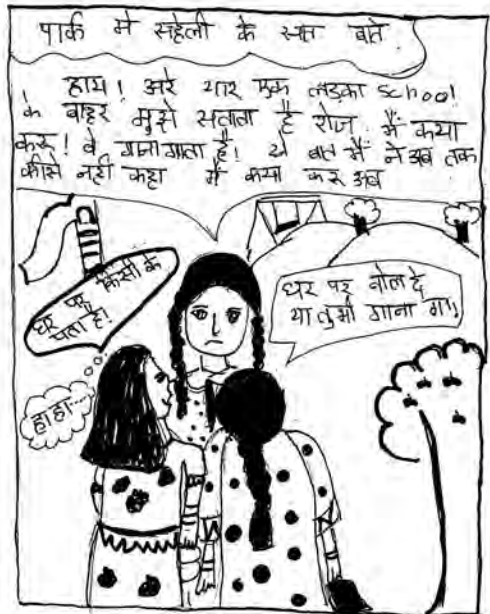 पार्क मे सहेली के सात बाते
हाय! अरे यार एक लड़का school
के बाहर मुझे सताता है रोज. मैं कया
करू! वे गानागाता है! ये बात मैं ने अब तक
कीसे नही कहा मैं कया करू अब
घर पर किसी के
पता है!
घर पर बोल दे
या तुमी गाना गा!
हा हा....